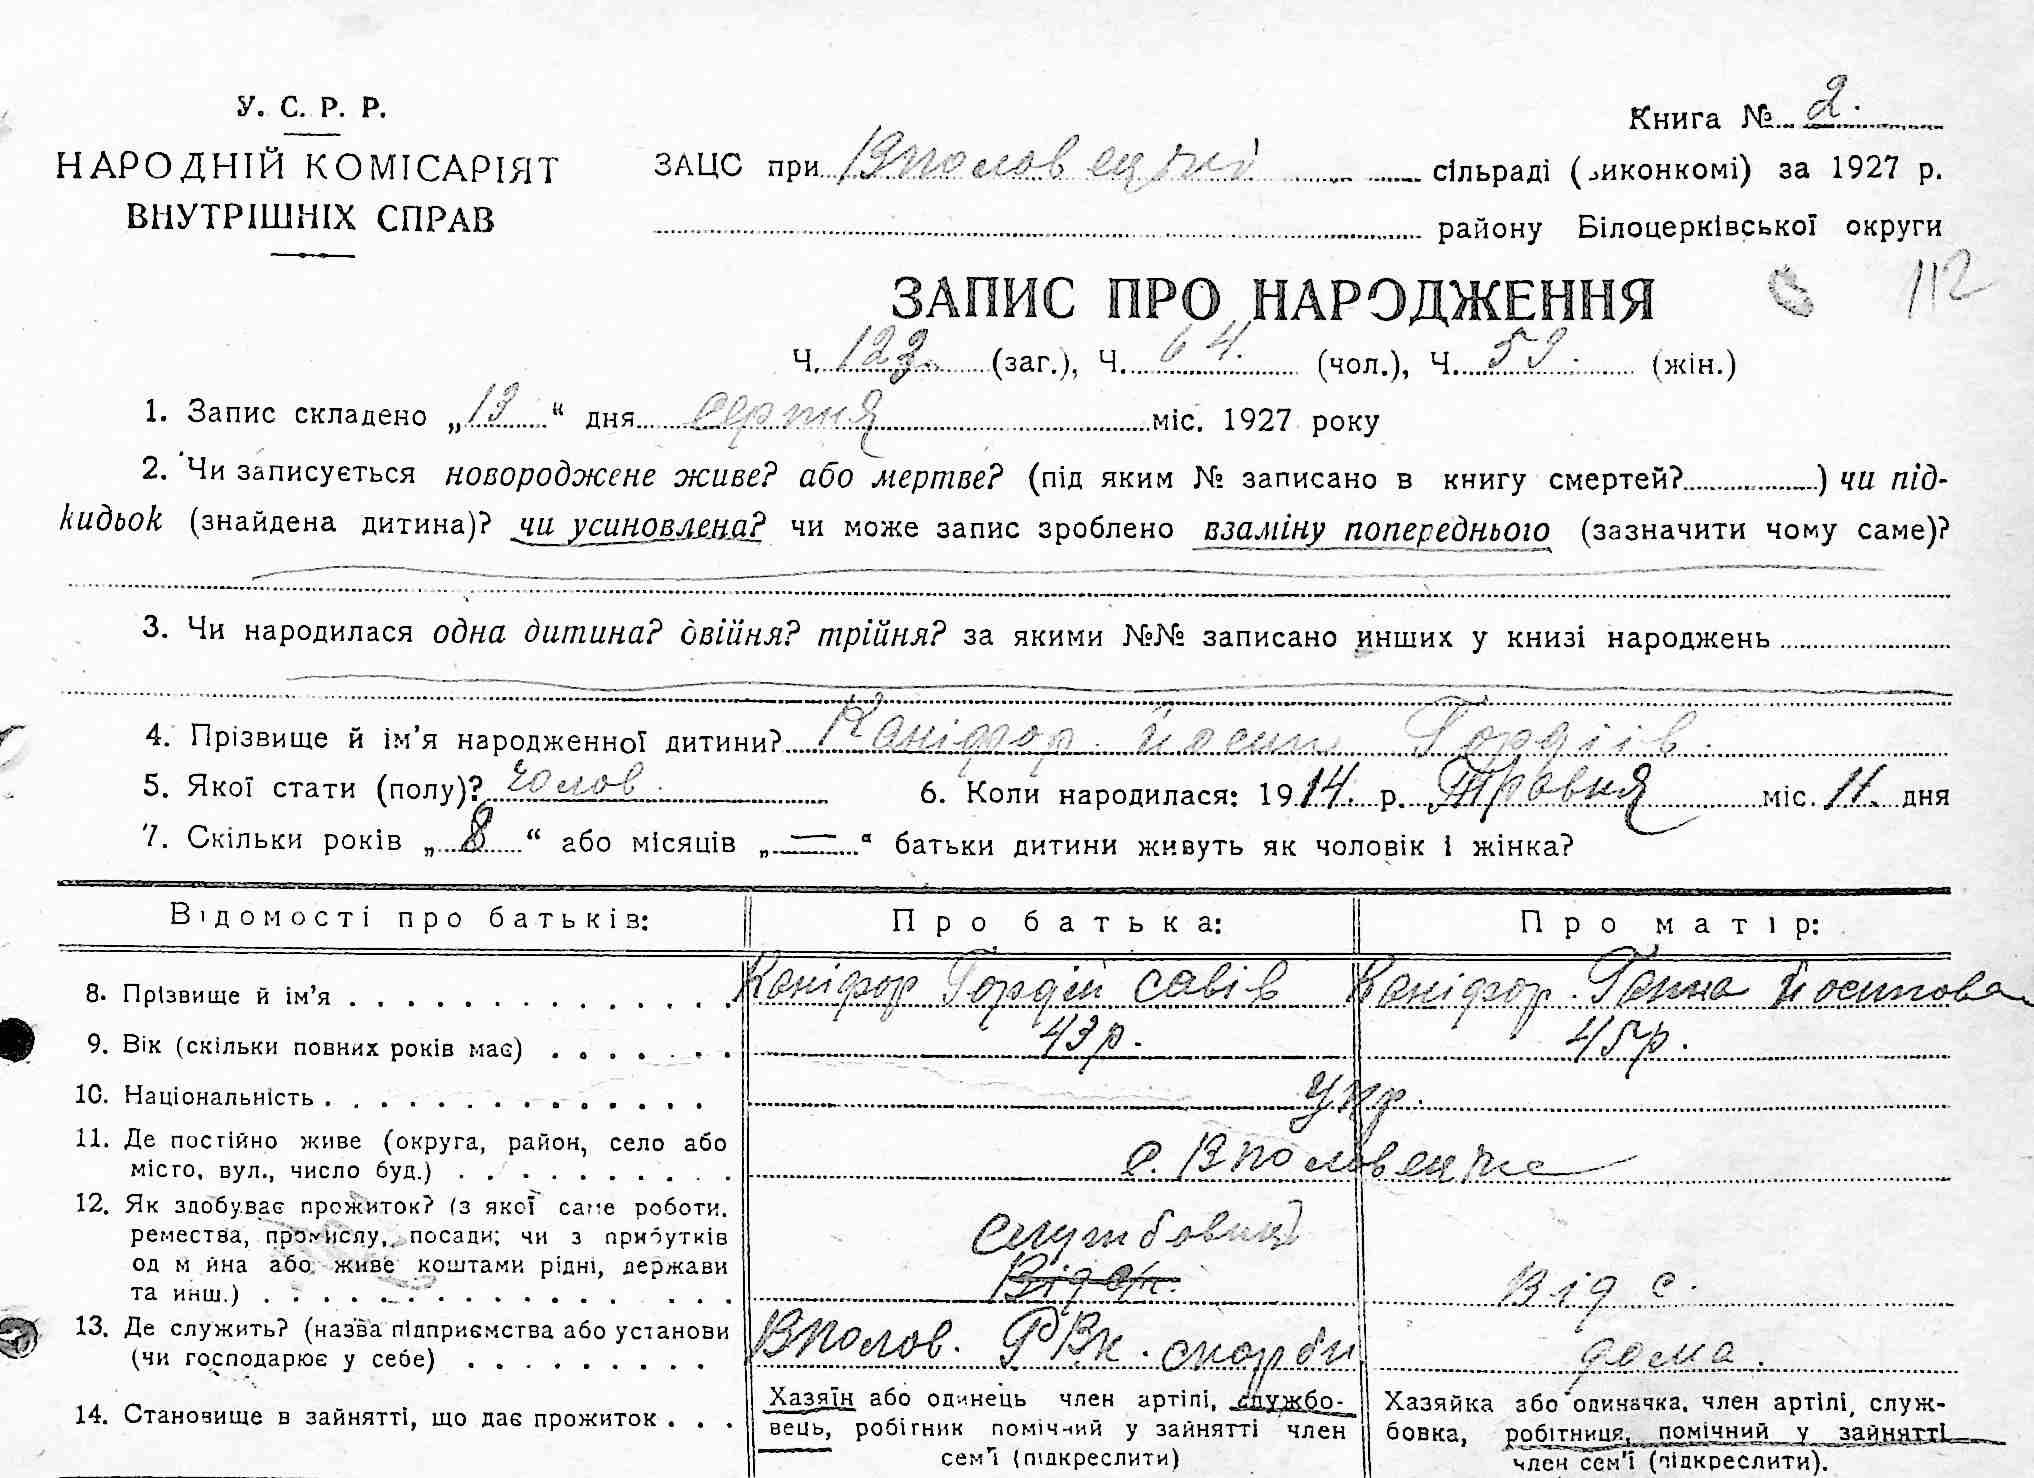 У. С. Р. Р.
НАРОДНІЙ КОМІСАРІЯТ
ВНУТРІШНІХ СПРАВ
Книга № 2.
ЗАЦС при Вполовецькі сільраді (виконкомі) за 1927 р.
району Білоцерківської округи
ЗАПИС ПРО НАРОДЖЕННЯ 112
Ч. 123 (заг.), Ч. 64. (чол.), Ч. 59. (жін.)
1. Запис складено „13“ дня серпня міс. 1927 року
2. Чи записується новороджене живе? або мертве? (під яким № записано в книгу смертей?) чи під-
кидьок (знайдена дитина)? чи усиновлена? чи може запис зроблено взаміну попереднього (зазначити чому саме)?
3. Чи народилася одна дитина? двійня? трійня? за якими №№ записано инших у книзі народжень
4. Прізвище й ім’я народженної дитини? Каніфор. Йосип Гордіїв.
5. Якої стати (полу)? чолов. 6. Коли народилася: 1914. р. Травня міс. 11. дня
7. Скільки років „8“ або місяців „—“ батьки дитини живуть як чоловік і жінка?
Відомості про батьків: Про батька: Про матір:
8. Прізвище й ім’я Каніфор Гордій Савів Каніфор. Ганна Йосипова
9. Вік (скільки повних років має) 43р. 45р.
10. Національність укр.
11. Де постійно живе (округа, район, село або
місто, вул., число буд.) с. Вполовецьке
12. Як здобуває прожиток? (з якої саме роботи,
ремества, промислу, посади; чи з прибутків Службовий
од майна або живе коштами рідні, держави
та инш.) Від с/г. Від с.
13. Де служить? (назва підприємства або установи
(чи господарює у себе) Вполов. РВК. дома.
14. Становище в зайнятті, що дає прожиток
Хазяїн або одинець член артілі, службо-
вець, робігник помічний у зайнятті член
сем’ї (підкреслити)
Хазяйка або одиначка, член артілі, служ-
бовка, робітниця, помічний у зайнятті
член сем’ї (підкреслити).